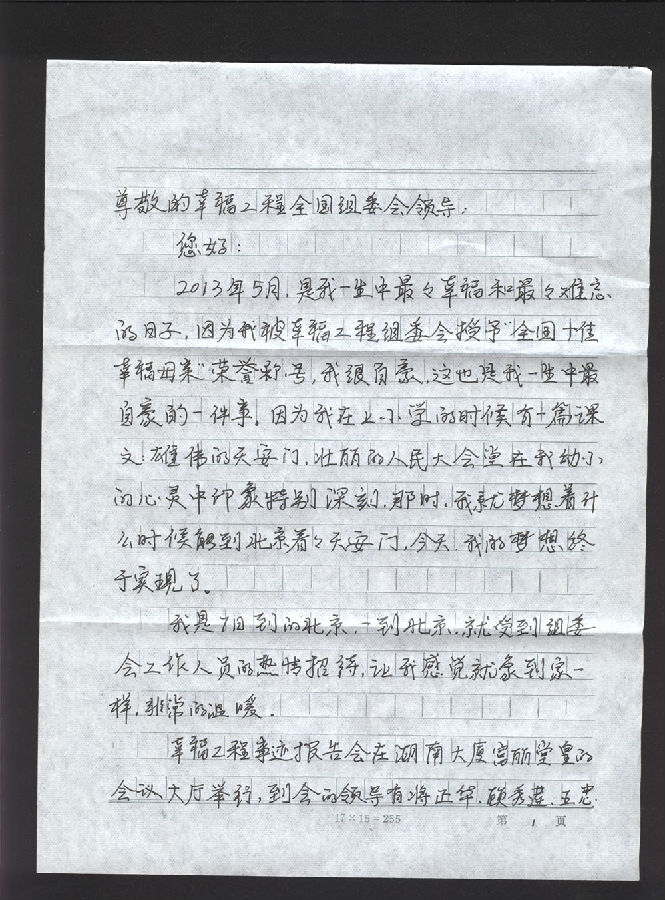 尊敬的幸福工程全国组委会领导:
您好:
2013年5月,是我一生中最々幸福和最々难忘
的日子,因为我被幸福工程组委会授予"全国十佳
幸福母亲"荣誉称号,我很自豪,这也是我一生中最
自豪的一件事。因为我在上小学的时候有一篇课
文:雄伟的天安门,壮丽的人民大会堂在我幼小
的心灵中印象特别深刻,那时,我就梦想着什
么时候能到北京看々天安门,今天,我的梦想终
于实现了。
我是7日到的北京,一到北京,就受到组委
会工作人员的热情招待,让我感觉就象到家一
样,非常的温暖。
幸福工程事迹报告会在湖南大厦富丽堂皇的
会议大厅举行,到会的领导有蒋正华、顾秀莲、王忠
17×15=255 第 1 頁